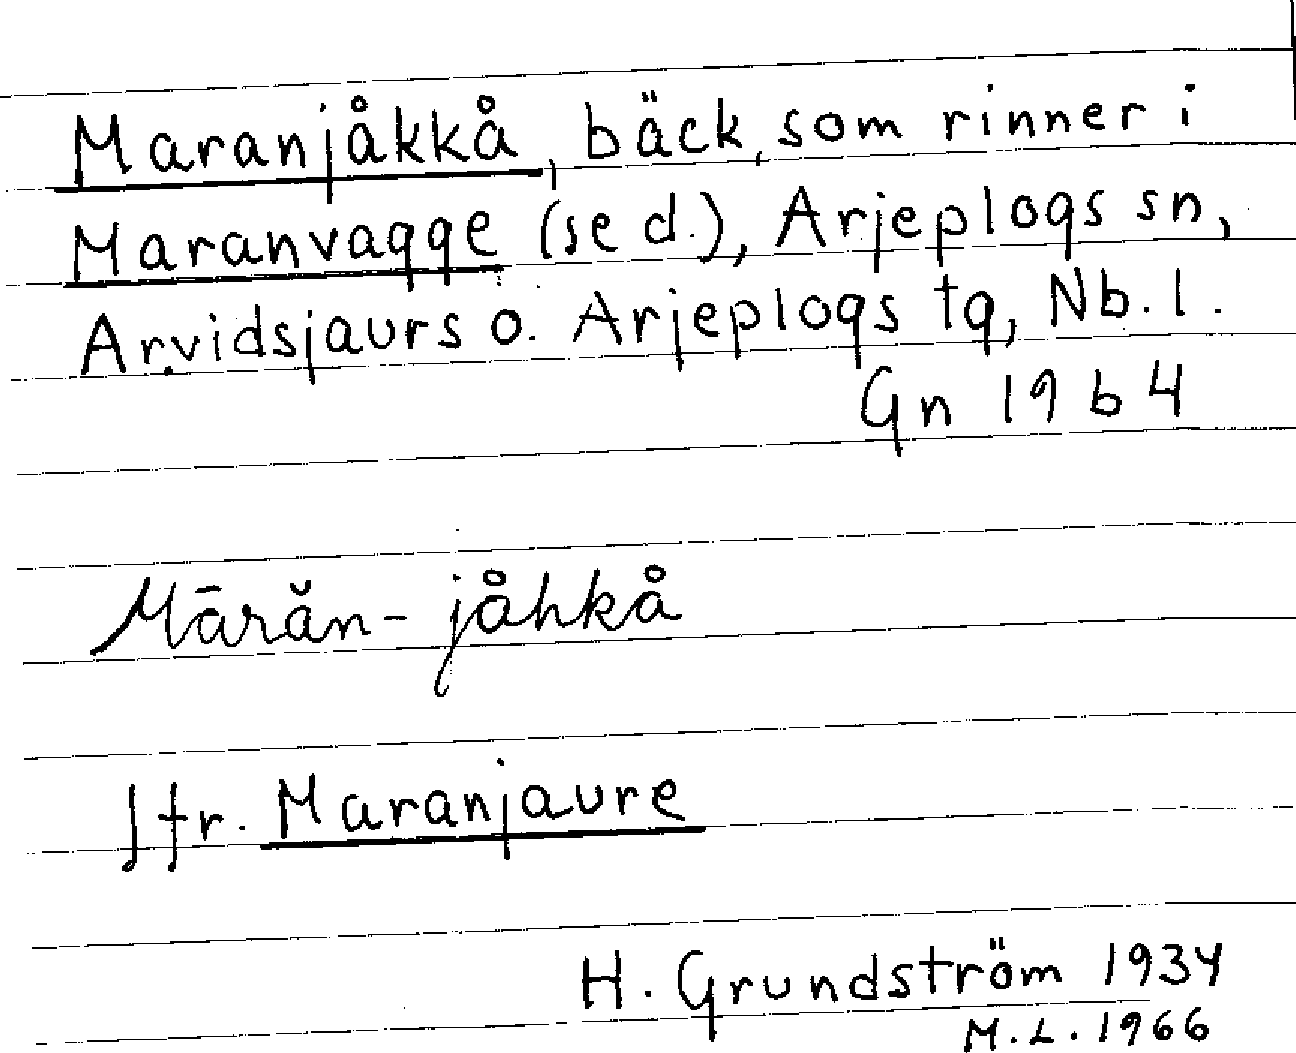 Maranjåkkå, bäck, som rinner i
Maranvagge (se d.), Arjeplogs sn,
Arvidsjaurs o. Arjeplogs tg, Nb. l.
Gn 1964
Mārăn-jåhkå
Jfr. Maranjaure
H. Grundström 1934
M.L. 1966